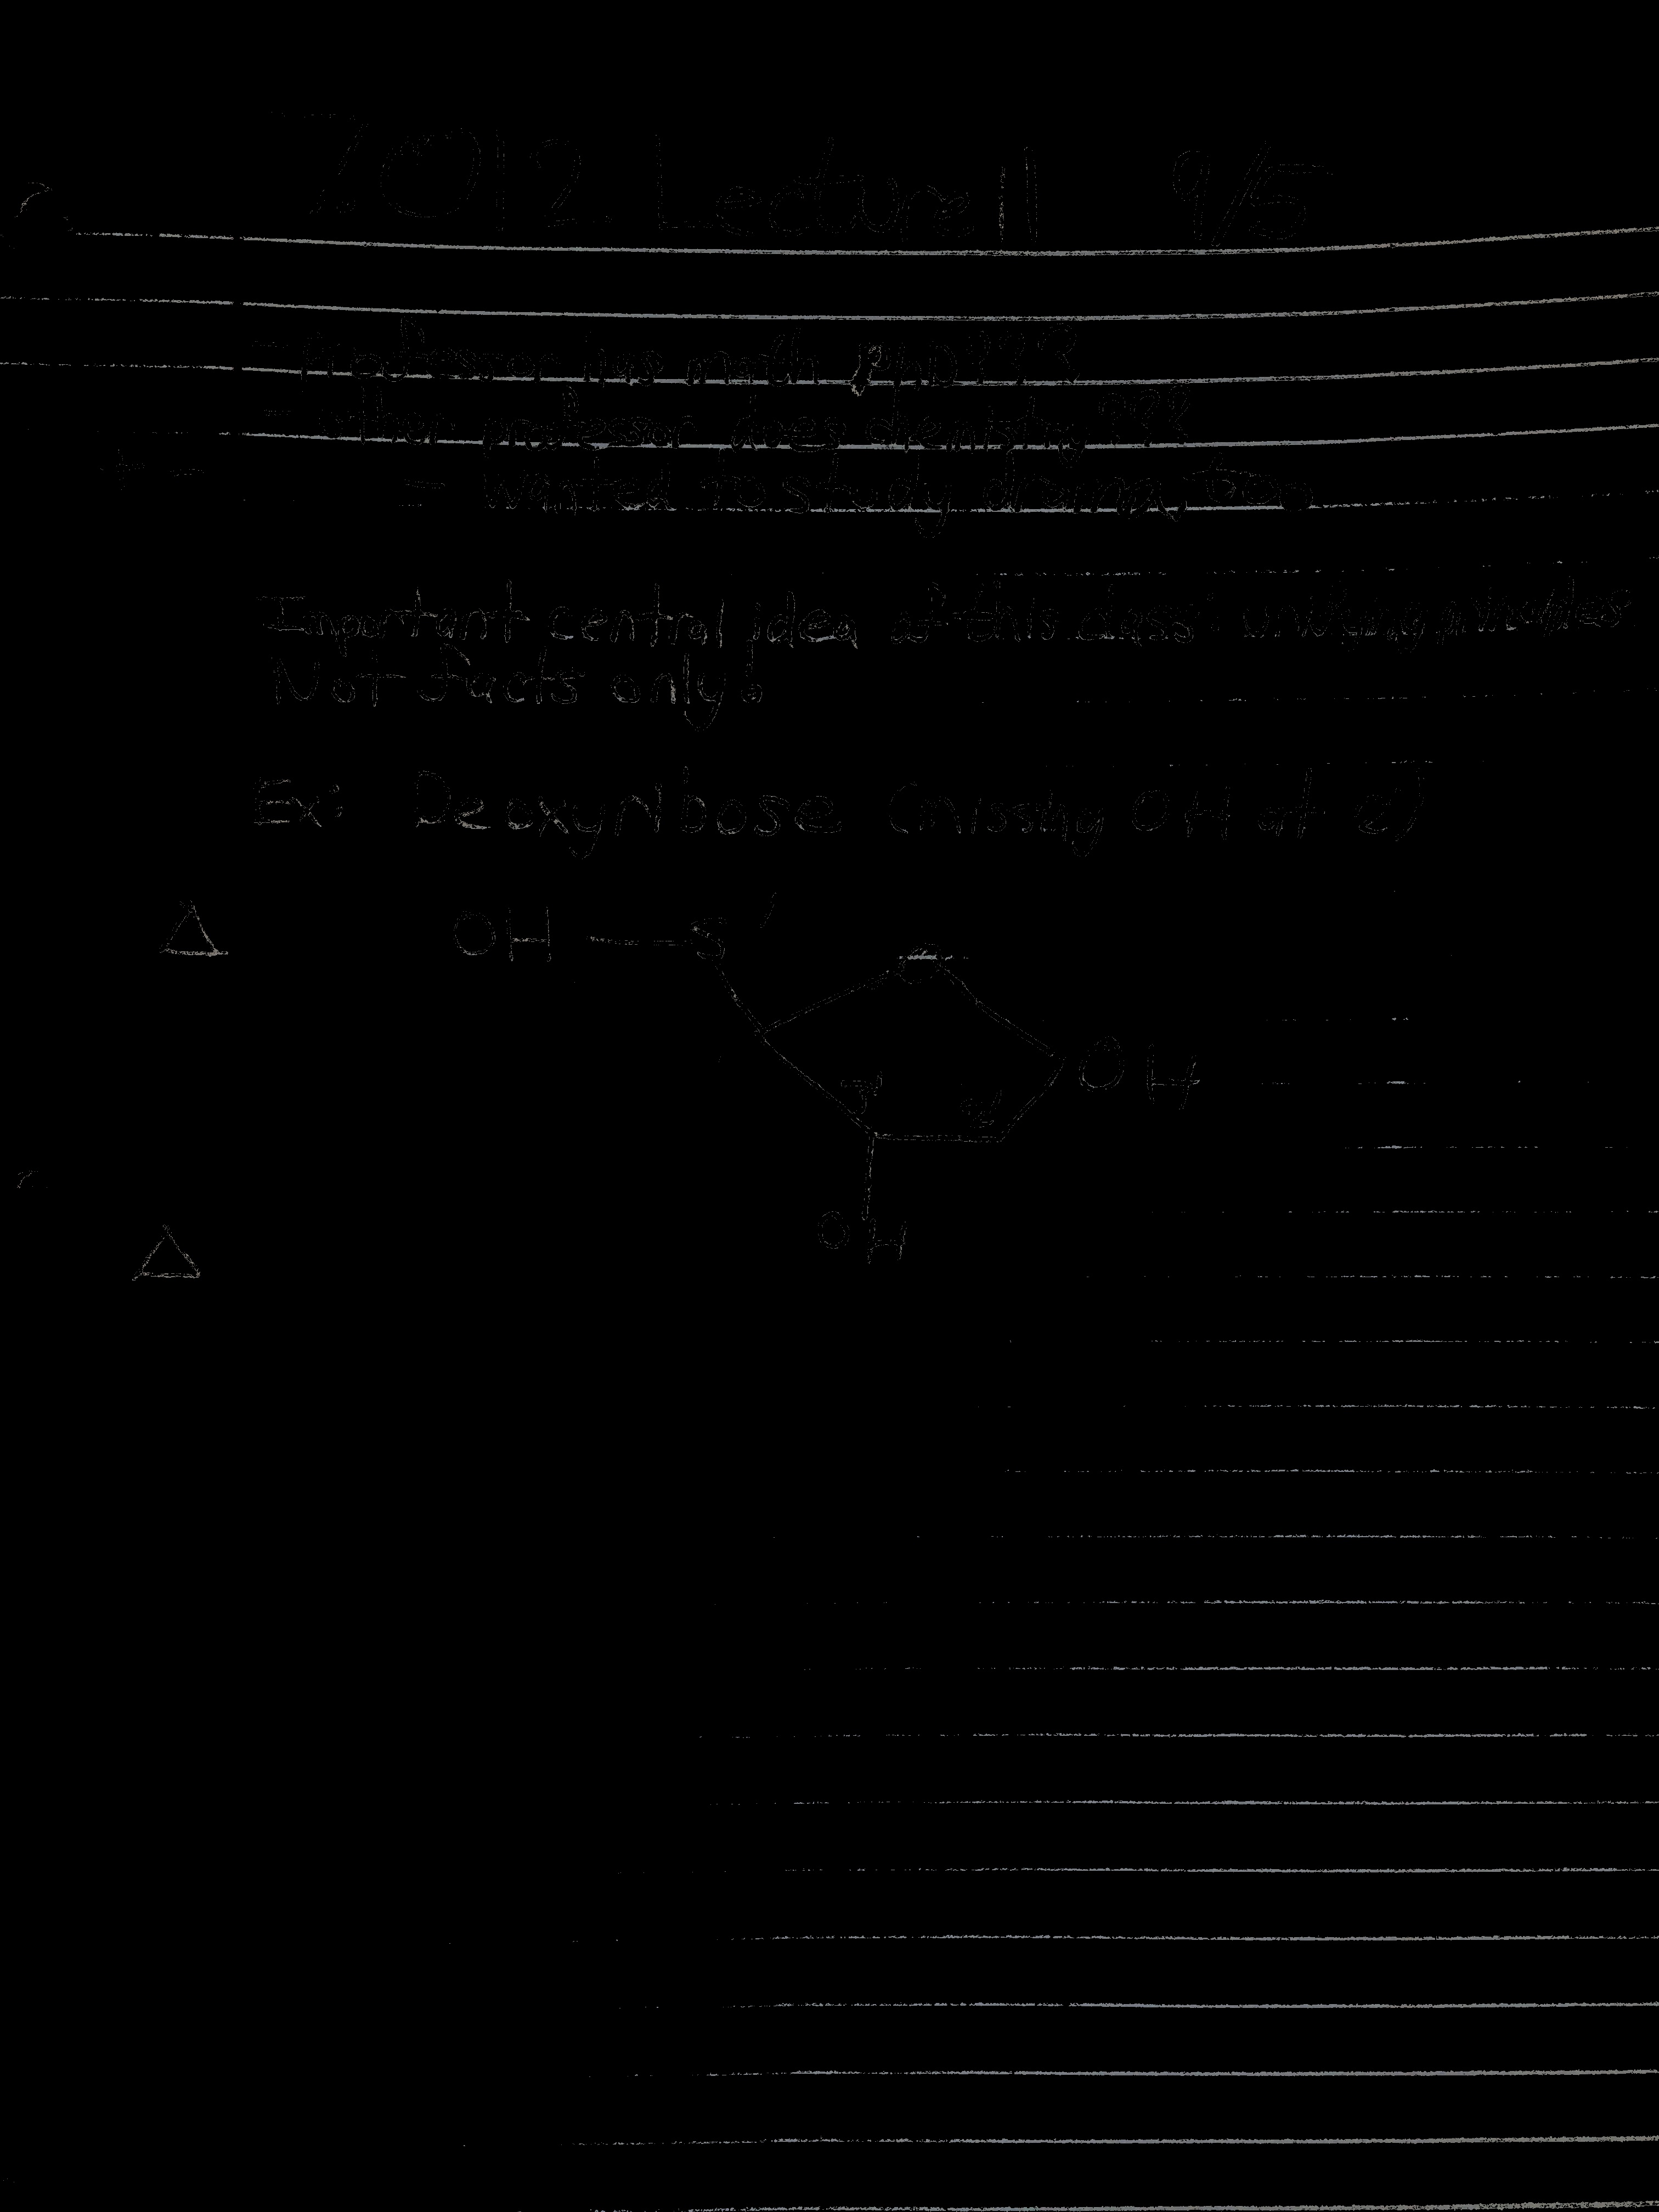 7.012 Lecture 1 9/5
- Professor has math PhD???
- other professor does chemistry???
- Wanted to study drama, too
Important central idea of this class: unifying principles
Not facts only!
Ex: Deoxyribose (missing OH at 2')
OH — 5'
O
OH
3' 2'
OH